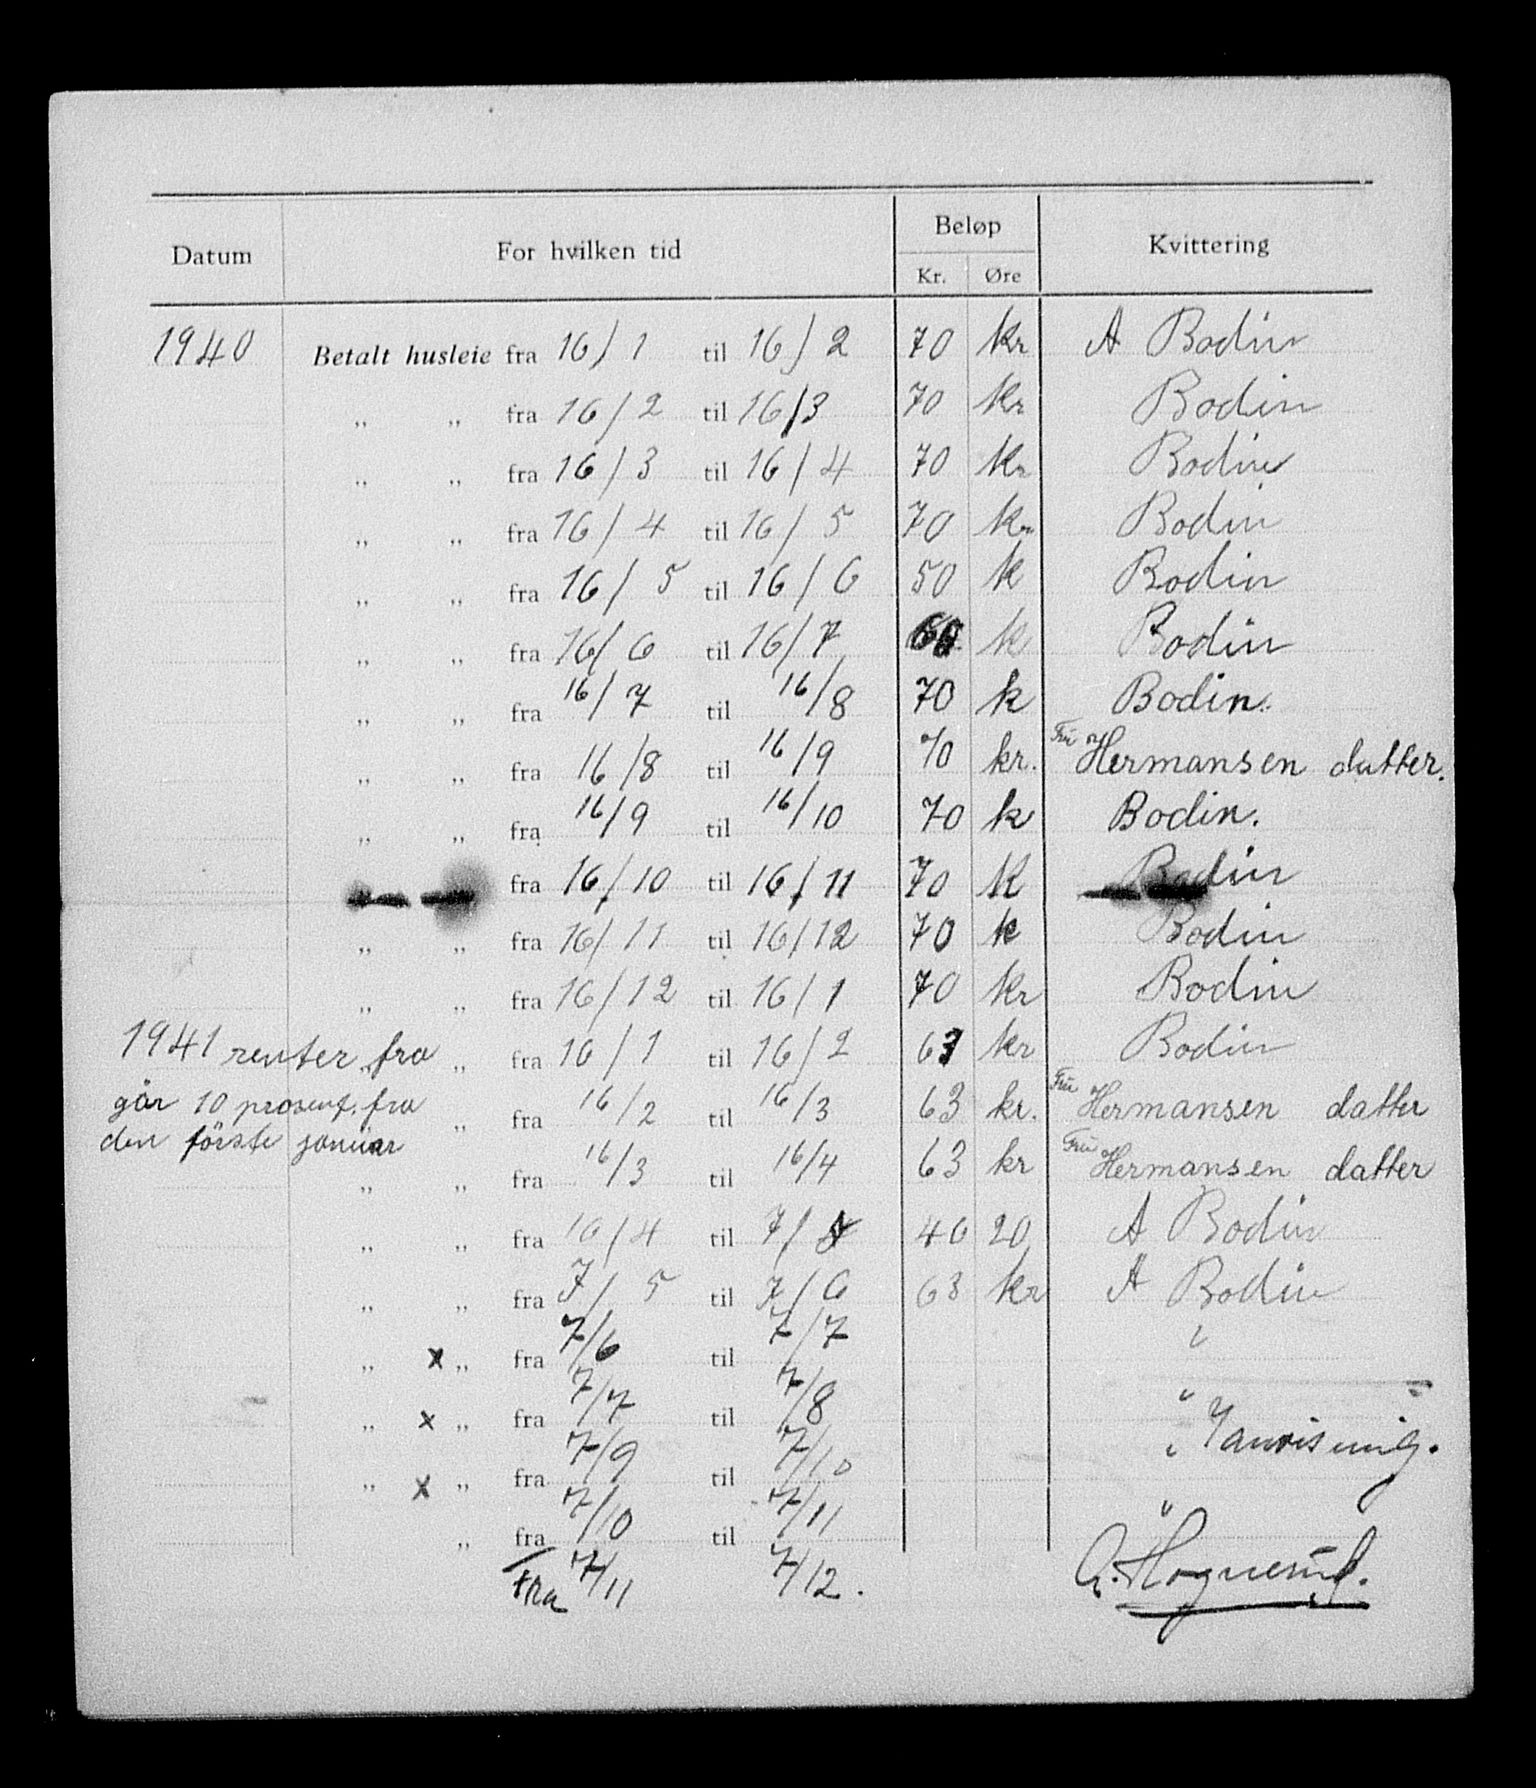 Datum For hvilken tid Beløp Kvittering
Kr. Øre
1940 Betalt husleie fra 16/1 til 16/2 70 kr A Bodin
„ „ fra 16/2 til 16/3 70 kr Bodin
„ „ fra 16/3 til 16/4 70 kr Bodin
„ „ fra 16/4 til 16/5 70 kr Bodin
„ „ fra 16/5 til 16/6 50 k Bodin
„ „ fra 16/6 til 16/7 k Bodin
„ „ fra 16/7 til 16/8 70 k Bodin.
„ „ fra 16/8 til 16/9 70 kr. Fru Hermansen datter.
„ „ fra 16/9 til 16/10 70 k Bodin.
fra 16/10 til 16/11 70 k Bodin
„ „ fra 16/11 til 16/12 70 k Bodin
„ „ fra 16/12 til 16/1 70 kr Bodin
1941 renter fra „ fra 16/1 til 16/2 63 kr Bodin
går 10 prosent. fra „ fra 16/2 til 16/3 63 kr. Fru Hermansen datter
den første januar
„ „ fra 16/3 til 16/4 63 kr Fru Hermansen datter
„ „ fra 16/4 til 7/ 46 20 A Bodin
„ „ fra 7/5 til 7/6 63 kr A Bodin
„ x „ fra 7/6 til 7/7 "
„ x „ fra 7/7 til 7/8 "
„ x „ fra 7/9 til 7/10 "
„ fra 7/10 til 7/11 "
Fra 7/11 7/12.